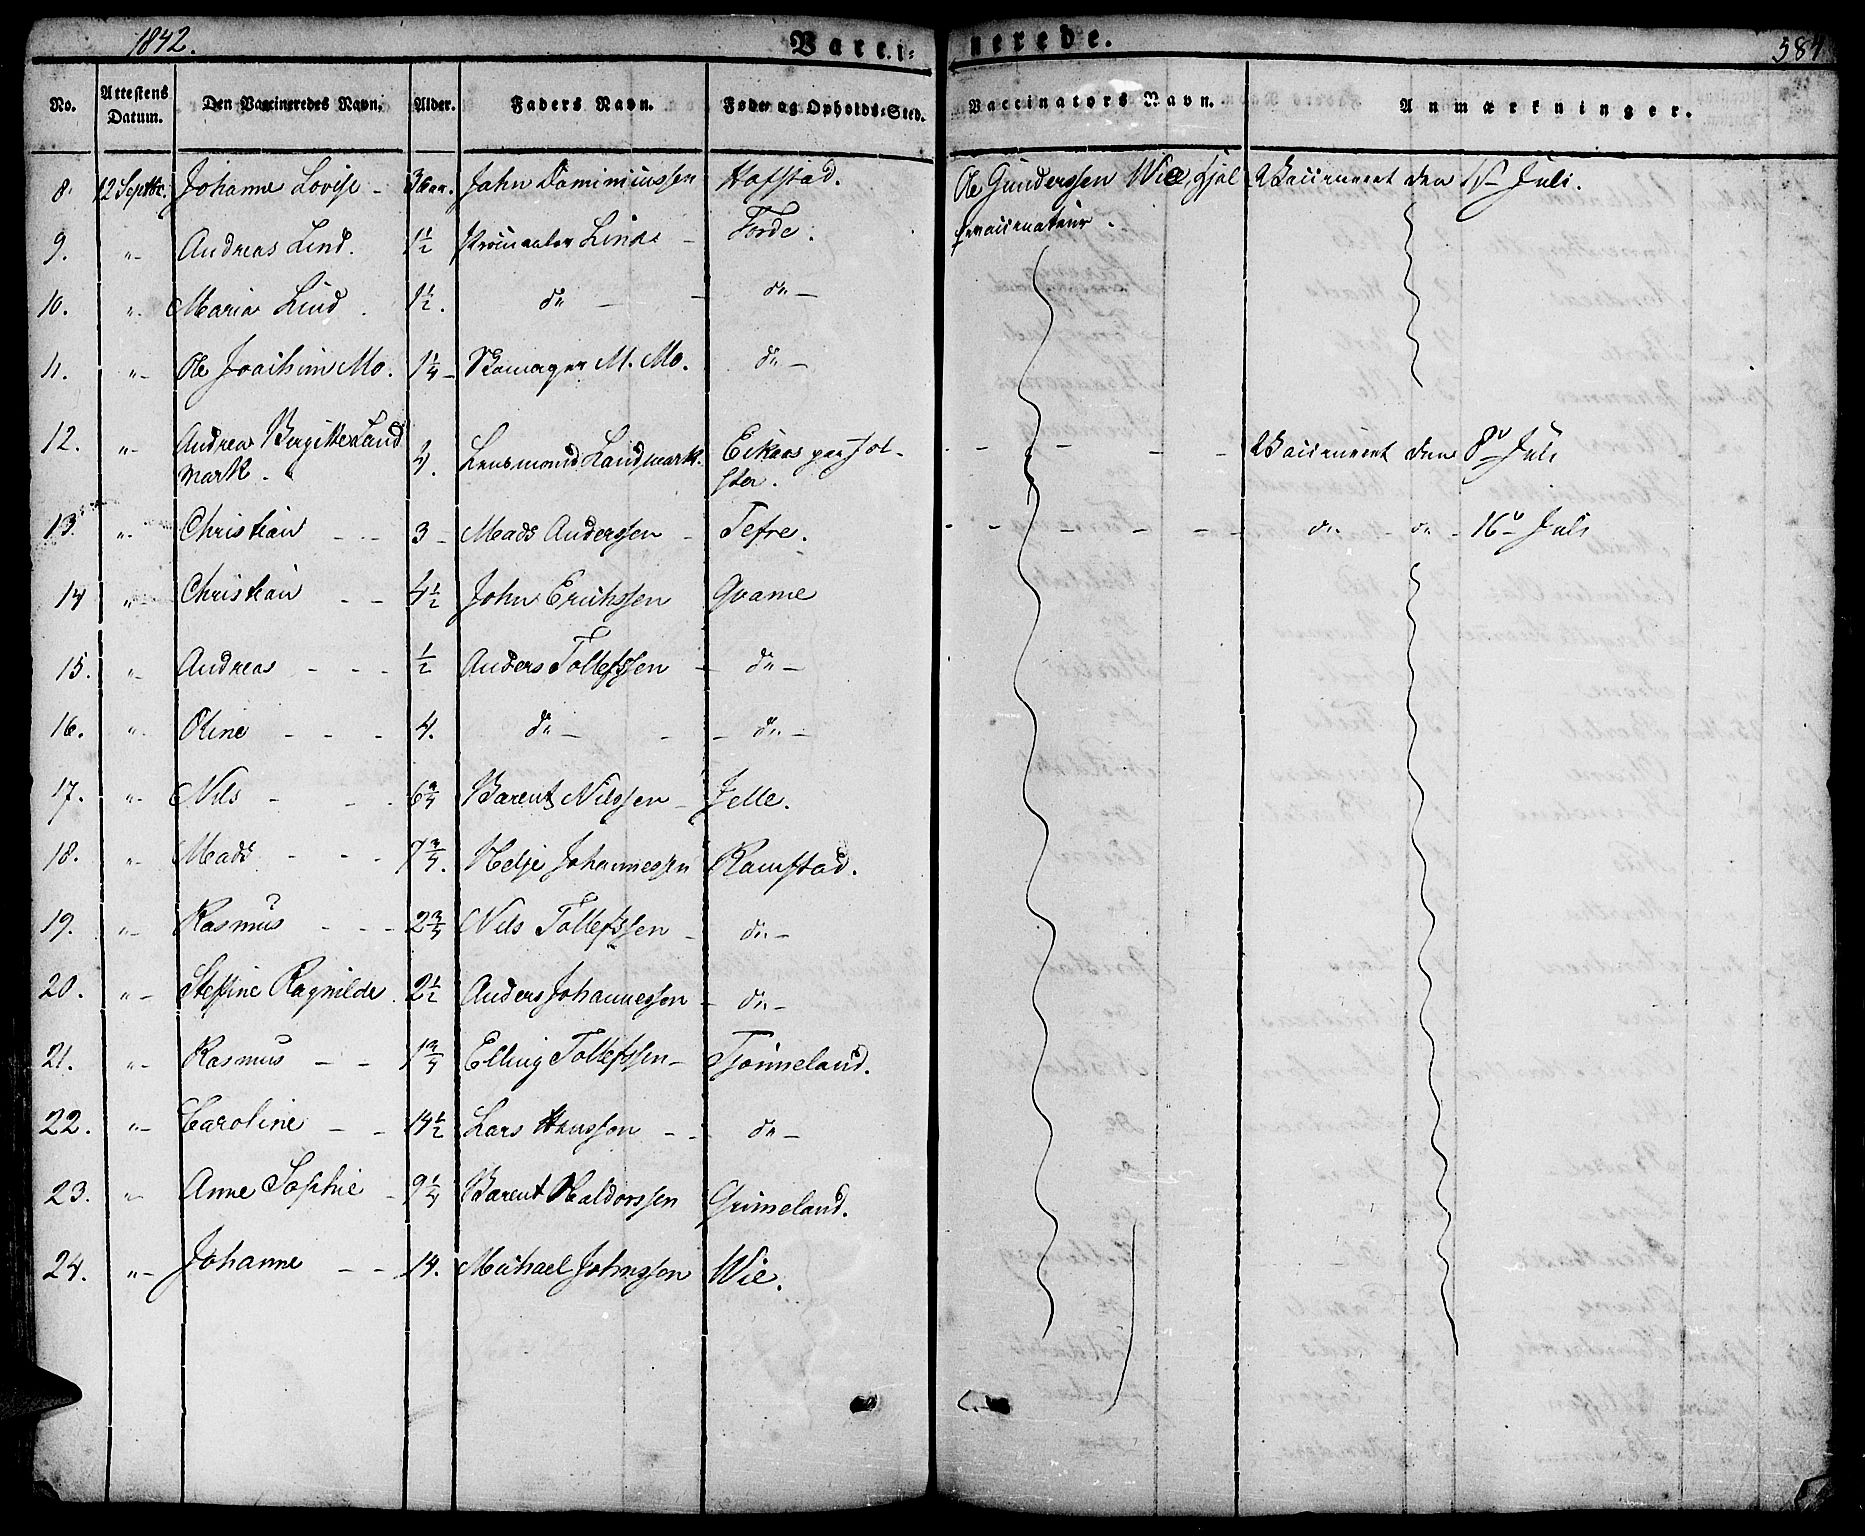 1842. Vacci- nerede. 584
No. Attestens Datum. Den Vaccineredes Navn. Alder. Faders Navn. Føde- og Opholds-Sted. Vaccinators Navn. Anmærkninger.
8. 12 Septbr. Johanne Lovise - 3 Aar. John Hofstad. Ole Gunderssen Wie, hjel Vaccineret den Juli.
9. "- Andreas Lind. 1½ Procurator Lind - Førde. pevaccinateur.
10. "- Maria Lind. 1½. do - - do -
11. "- Ole Joachim Mo. 1¼ - M. Mo. do -
12. "- Andrea Bergitte Land 4. Lensmand Landmark. Eikaas paa Jøl- - - - - - Vaccineret den 8de Juli
mark. ster.
13. "- Christian - - 3 - Mads Anderssen - Tefre. - - - - - - do - do - 16de Juli
14 "- Christian - - 4½ John Erichssen Qvame
15. "- Andreas - - - ½ Anders Tollefssen - do -
16. "- Oline - - - 4. do - - - do -
17. "- Nils - - - 6¾ Barent Nilssen - Jelle.
18. "- Mads - - - 7¾. Helje Johannessen Ramstad.
19. "- Rasmus - - - 2¾ Nils Tollefssen - do -
20. "- Steffine Ragnilde. 2½ Anders Johannessen - do -
21. "- Rasmus - - 1¾ Elling Tollefssen - Tjønneland.
22. "- Caroline - - 14½ Lars Hanssen - - do -
23. "- Anne Sophie - 9¼ Barent Haldorssen Grimeland.
24. "- Johanne - - 14. Michael Johngsen Wie.